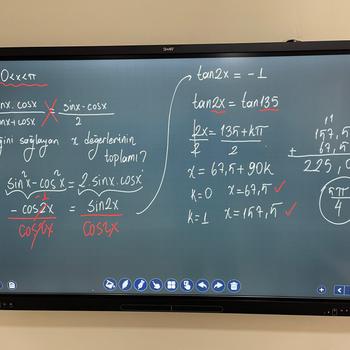 SMART
0<x<π
sinx.cosx / sinx+cosx = sinx-cosx / 2
sağlayan x değerlerinin
toplamı?
sin²x-cos²x = 2.sinx.cosx
-cos2x / cos2x = sin2x / cos2x
-1
tan2x = -1
tan2x = tan135
2x/2 = 135+kπ/2
x = 67,5+90k
k=0 x=67,5 ✓
k=1 x=157,5 ✓
11
157,5
+ 67,5
225,0
5π/4